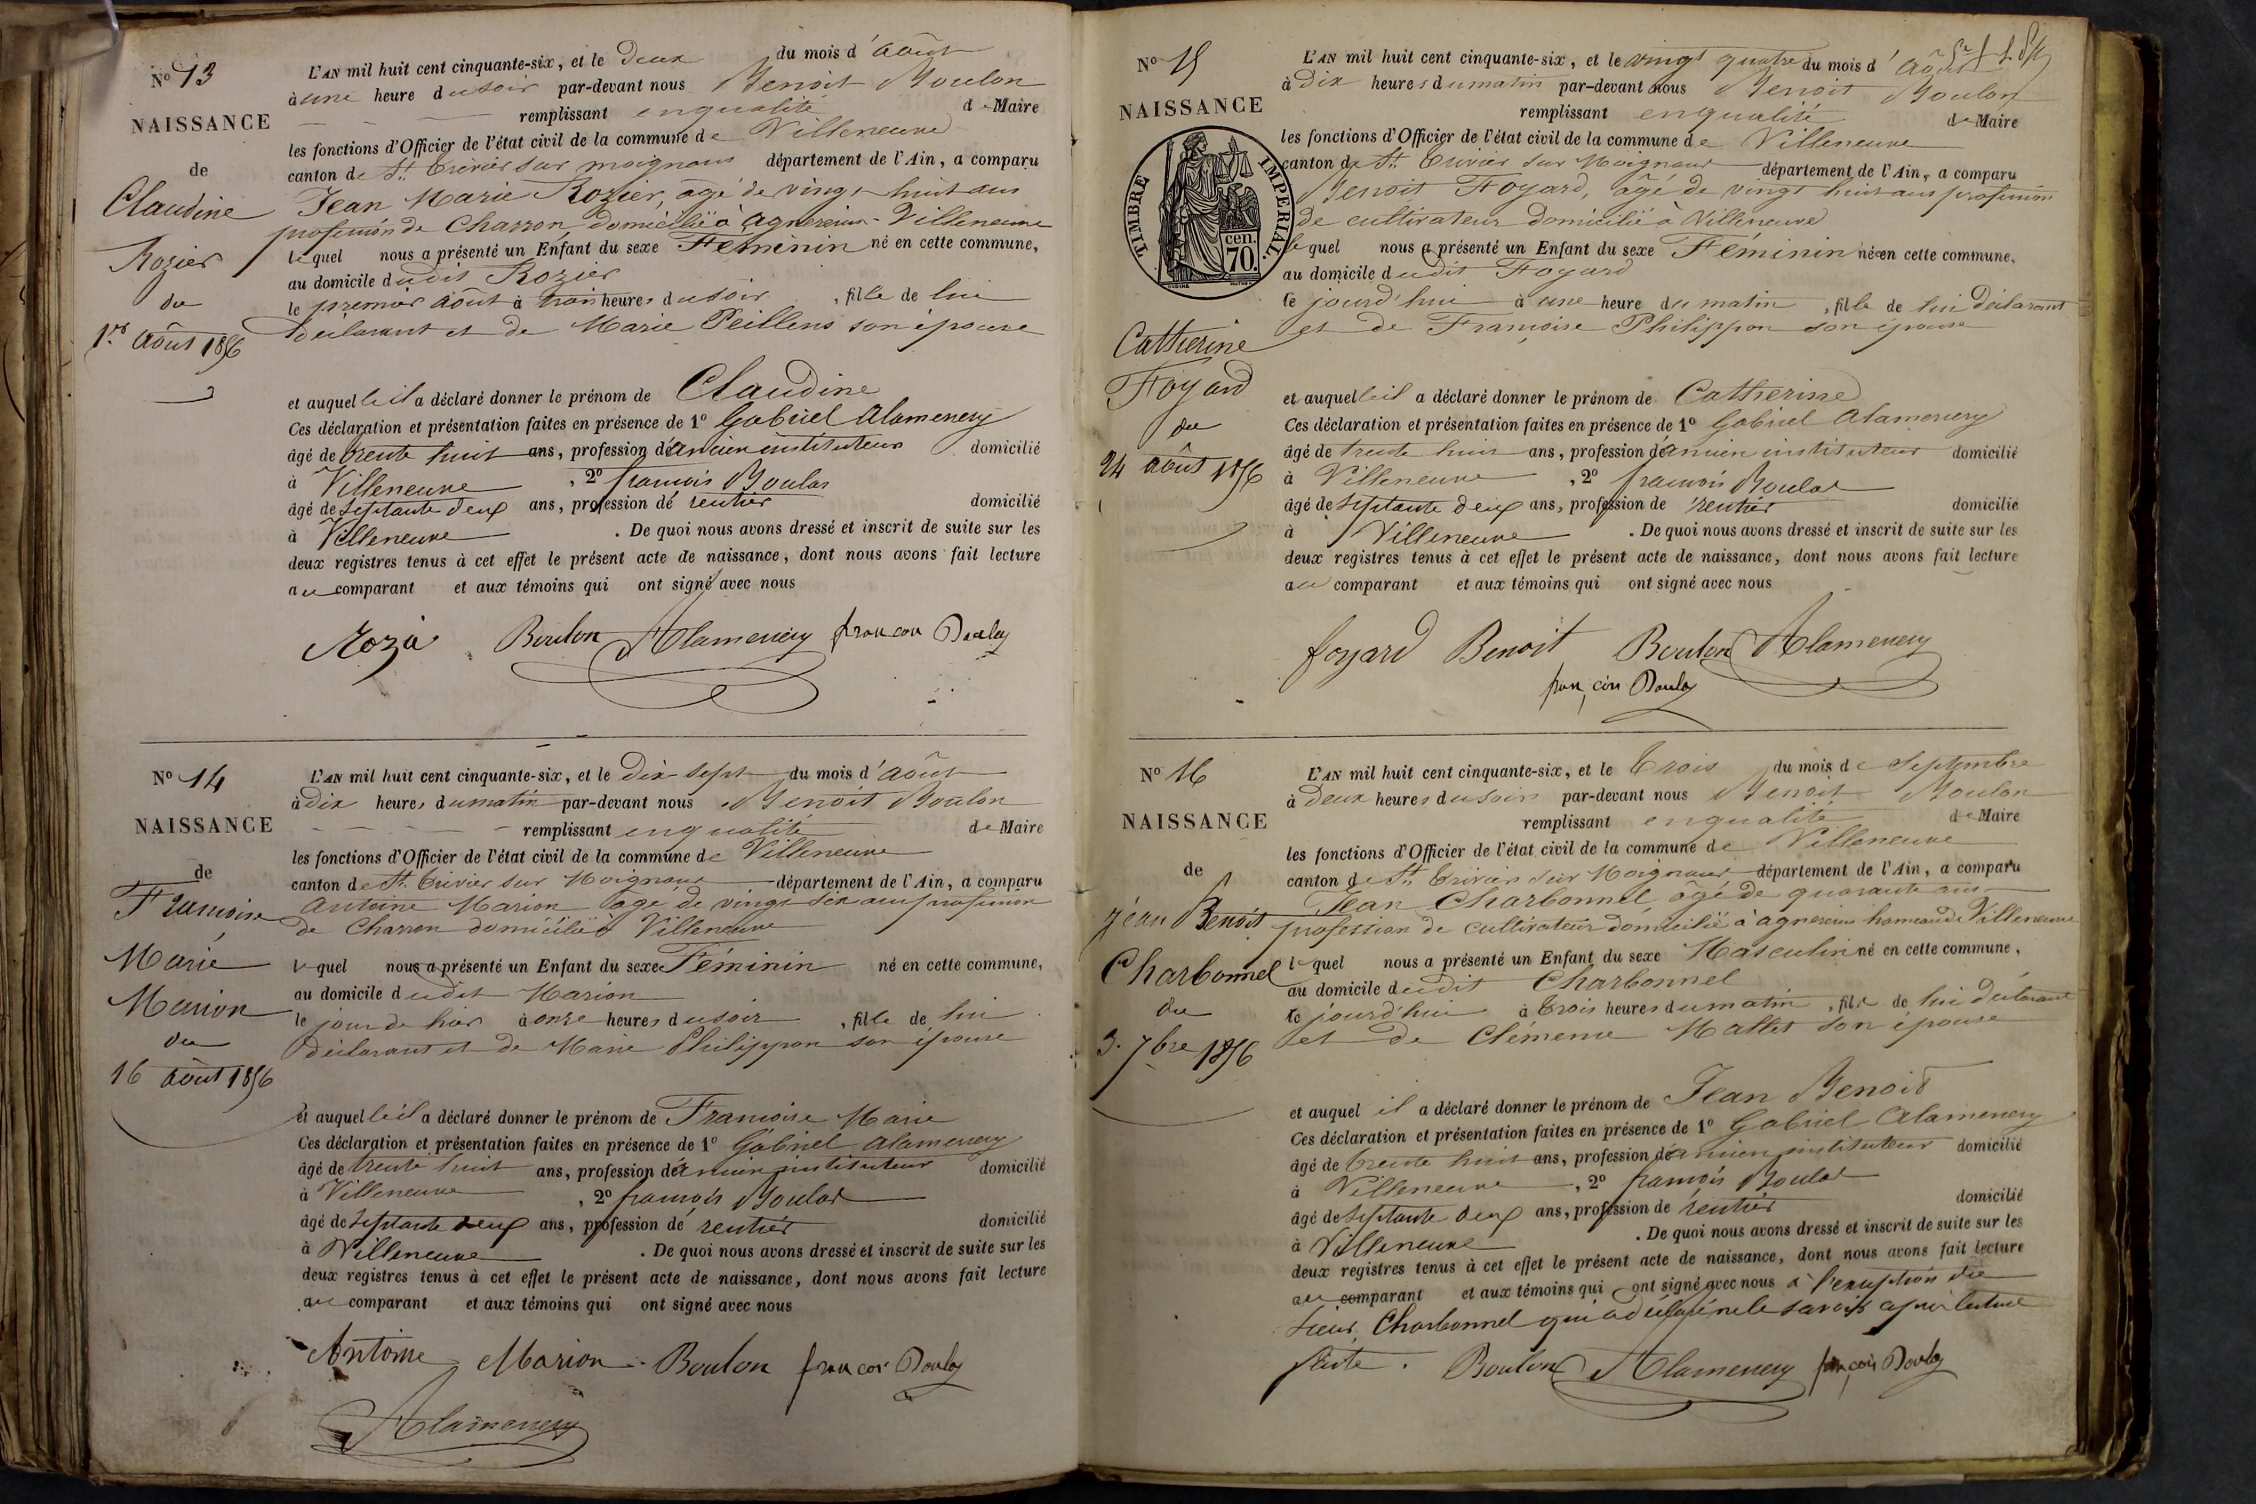 N° 13
NAISSANCE
de
Claudine
Rozier
du
1er Août 1856
L'AN mil huit cent cinquante-six, et le Deux du mois d'Août
à une heure du soir par-devant nous Benoit Boulon
remplissant en qualité de Maire
les fonctions d'Officier de l'état civil de la commune de Villeneuve
canton de St. Trivier sur moignans département de l'Ain, a comparu
Jean Marie Rozier, âgé de vingt huit ans
profession de Charron domicilié à agnereins Villeneuve
lequel nous a présenté un Enfant du sexe Féminin né en cette commune,
au domicile dudit Rozier
le premier Août à trois heures du soir, fille de lui
déclarant et de Marie Peillens son épouse
et auquelle il a déclaré donner le prénom de Claudine
Ces déclaration et présentation faites en présence de 1° Gabriel Alamenery
âgé de trente huit ans, profession d'ancien instituteur domicilié
à Villeneuve, 2° françois Boulas
âgé de septante deux ans, profession de rentier domicilié
à Villeneuve. De quoi nous avons dressé et inscrit de suite sur les
deux registres tenus à cet effet le présent acte de naissance, dont nous avons fait lecture
au comparant et aux témoins qui ont signé avec nous
Rozié Boulon Alamenery
N° 14
NAISSANCE
de
Françoise
Marie
Marion
du
16 Août 1856
L'AN mil huit cent cinquante-six, et le Dix sept du mois d'Août
à Dix heures du matin par-devant nous Benoit Boulon
remplissant en qualité de Maire
les fonctions d'Officier de l'état civil de la commune de Villeneuve
canton de St. Trivier sur Moignans département de l'Ain, a comparu
Antoine Marion âgé de vingt six ans profession
de Charron domicilié à Villeneuve
lequel nous a présenté un Enfant du sexe Féminin né en cette commune,
au domicile dudit Marion
le jour de hier à onze heures du soir, fille de lui
déclarant et de Marie Philippon son épouse
et auquelle il a déclaré donner le prénom de Françoise Marie
Ces déclaration et présentation faites en présence de 1° Gabriel Alamenery
âgé de trente huit ans, profession d'ancien instituteur domicilié
à Villeneuve, 2° françois Boulas
âgé de septante deux ans, profession de rentier domicilié
à Villeneuve. De quoi nous avons dressé et inscrit de suite sur les
deux registres tenus à cet effet le présent acte de naissance, dont nous avons fait lecture
au comparant et aux témoins qui ont signé avec nous
Antoine Marion Boulon
Alamenery
N° 15
NAISSANCE
TIMBRE IMPERIAL
cen.
70.
Catherine
Foyard
du
24 Août 1856
L'AN mil huit cent cinquante-six, et le vingt quatre du mois d'Août
à Dix heures du matin par-devant nous Benoit Boulon
remplissant en qualité de Maire
les fonctions d'Officier de l'état civil de la commune de Villeneuve
canton de St. Trivier sur Moignans département de l'Ain, a comparu
Benoit Foyard, âgé de vingt huit ans profession
de cultivateur domicilié à Villeneuve
lequel nous a présenté un Enfant du sexe Féminin née en cette commune,
au domicile dudit Foyard
le jourd'hui à une heure du matin, fille de lui déclarant
et de Françoise Philippon son épouse
et auquelle il a déclaré donner le prénom de Catherine
Ces déclaration et présentation faites en présence de 1° Gabriel Alamenery
âgé de trente huit ans, profession d'ancien instituteur domicilié
à Villeneuve, 2° françois Boulas
âgé de septante deux ans, profession de rentier domicilié
à Villeneuve. De quoi nous avons dressé et inscrit de suite sur les
deux registres tenus à cet effet le présent acte de naissance, dont nous avons fait lecture
au comparant et aux témoins qui ont signé avec nous
foyard Benoit Boulon Alamenery
N° 16
NAISSANCE
de
Jean Benoit
Charbonnel
du
3. 7bre 1856
L'AN mil huit cent cinquante-six, et le Trois du mois de Septembre
à Deux heures du soir par-devant nous Benoit Boulon
remplissant en qualité de Maire
les fonctions d'Officier de l'état civil de la commune de Villeneuve
canton de St. Trivier sur Moignans département de l'Ain, a comparu
Jean Charbonnel âgé de quarante ans
profession de cultivateur domicilié à agnereins hameau de Villeneuve
lequel nous a présenté un Enfant du sexe Masculin né en cette commune,
au domicile dudit Charbonnel
le jourd'hui à trois heures du matin, fils de lui déclarant
et de Clémence Mallet son épouse
et auquel il a déclaré donner le prénom de Jean Benoit
Ces déclaration et présentation faites en présence de 1° Gabriel Alamenery
âgé de trente huit ans, profession d'ancien instituteur domicilié
à Villeneuve, 2° françois Boulas
âgé de septante deux ans, profession de rentier domicilié
à Villeneuve. De quoi nous avons dressé et inscrit de suite sur les
deux registres tenus à cet effet le présent acte de naissance, dont nous avons fait lecture
au comparant et aux témoins qui ont signé avec nous à l'exception du
sieur Charbonnel qui a déclaré ne le savoir après lecture
faite. Boulon Alamenery